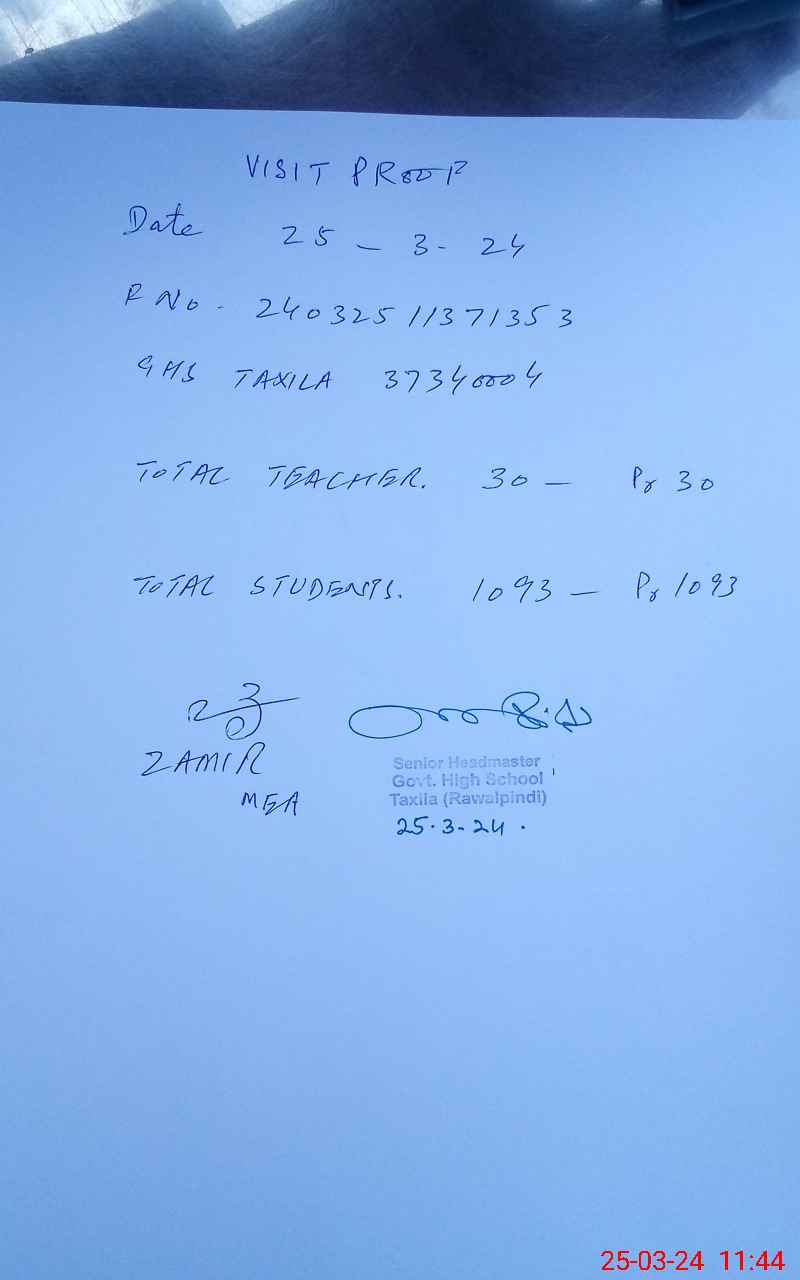 VISIT PROOF
Date 25 - 3 - 24
R No. 24032511371353
GHS TAXILA 37340004
TOTAL TEACHER. 30 - Pr 30
TOTAL STUDENTS. 1093 - Pr 1093
ZAMIR
MEA
Senior Headmaster
Govt. High School
Taxila (Rawalpindi)
25.3-24.
25-03-24 11:44